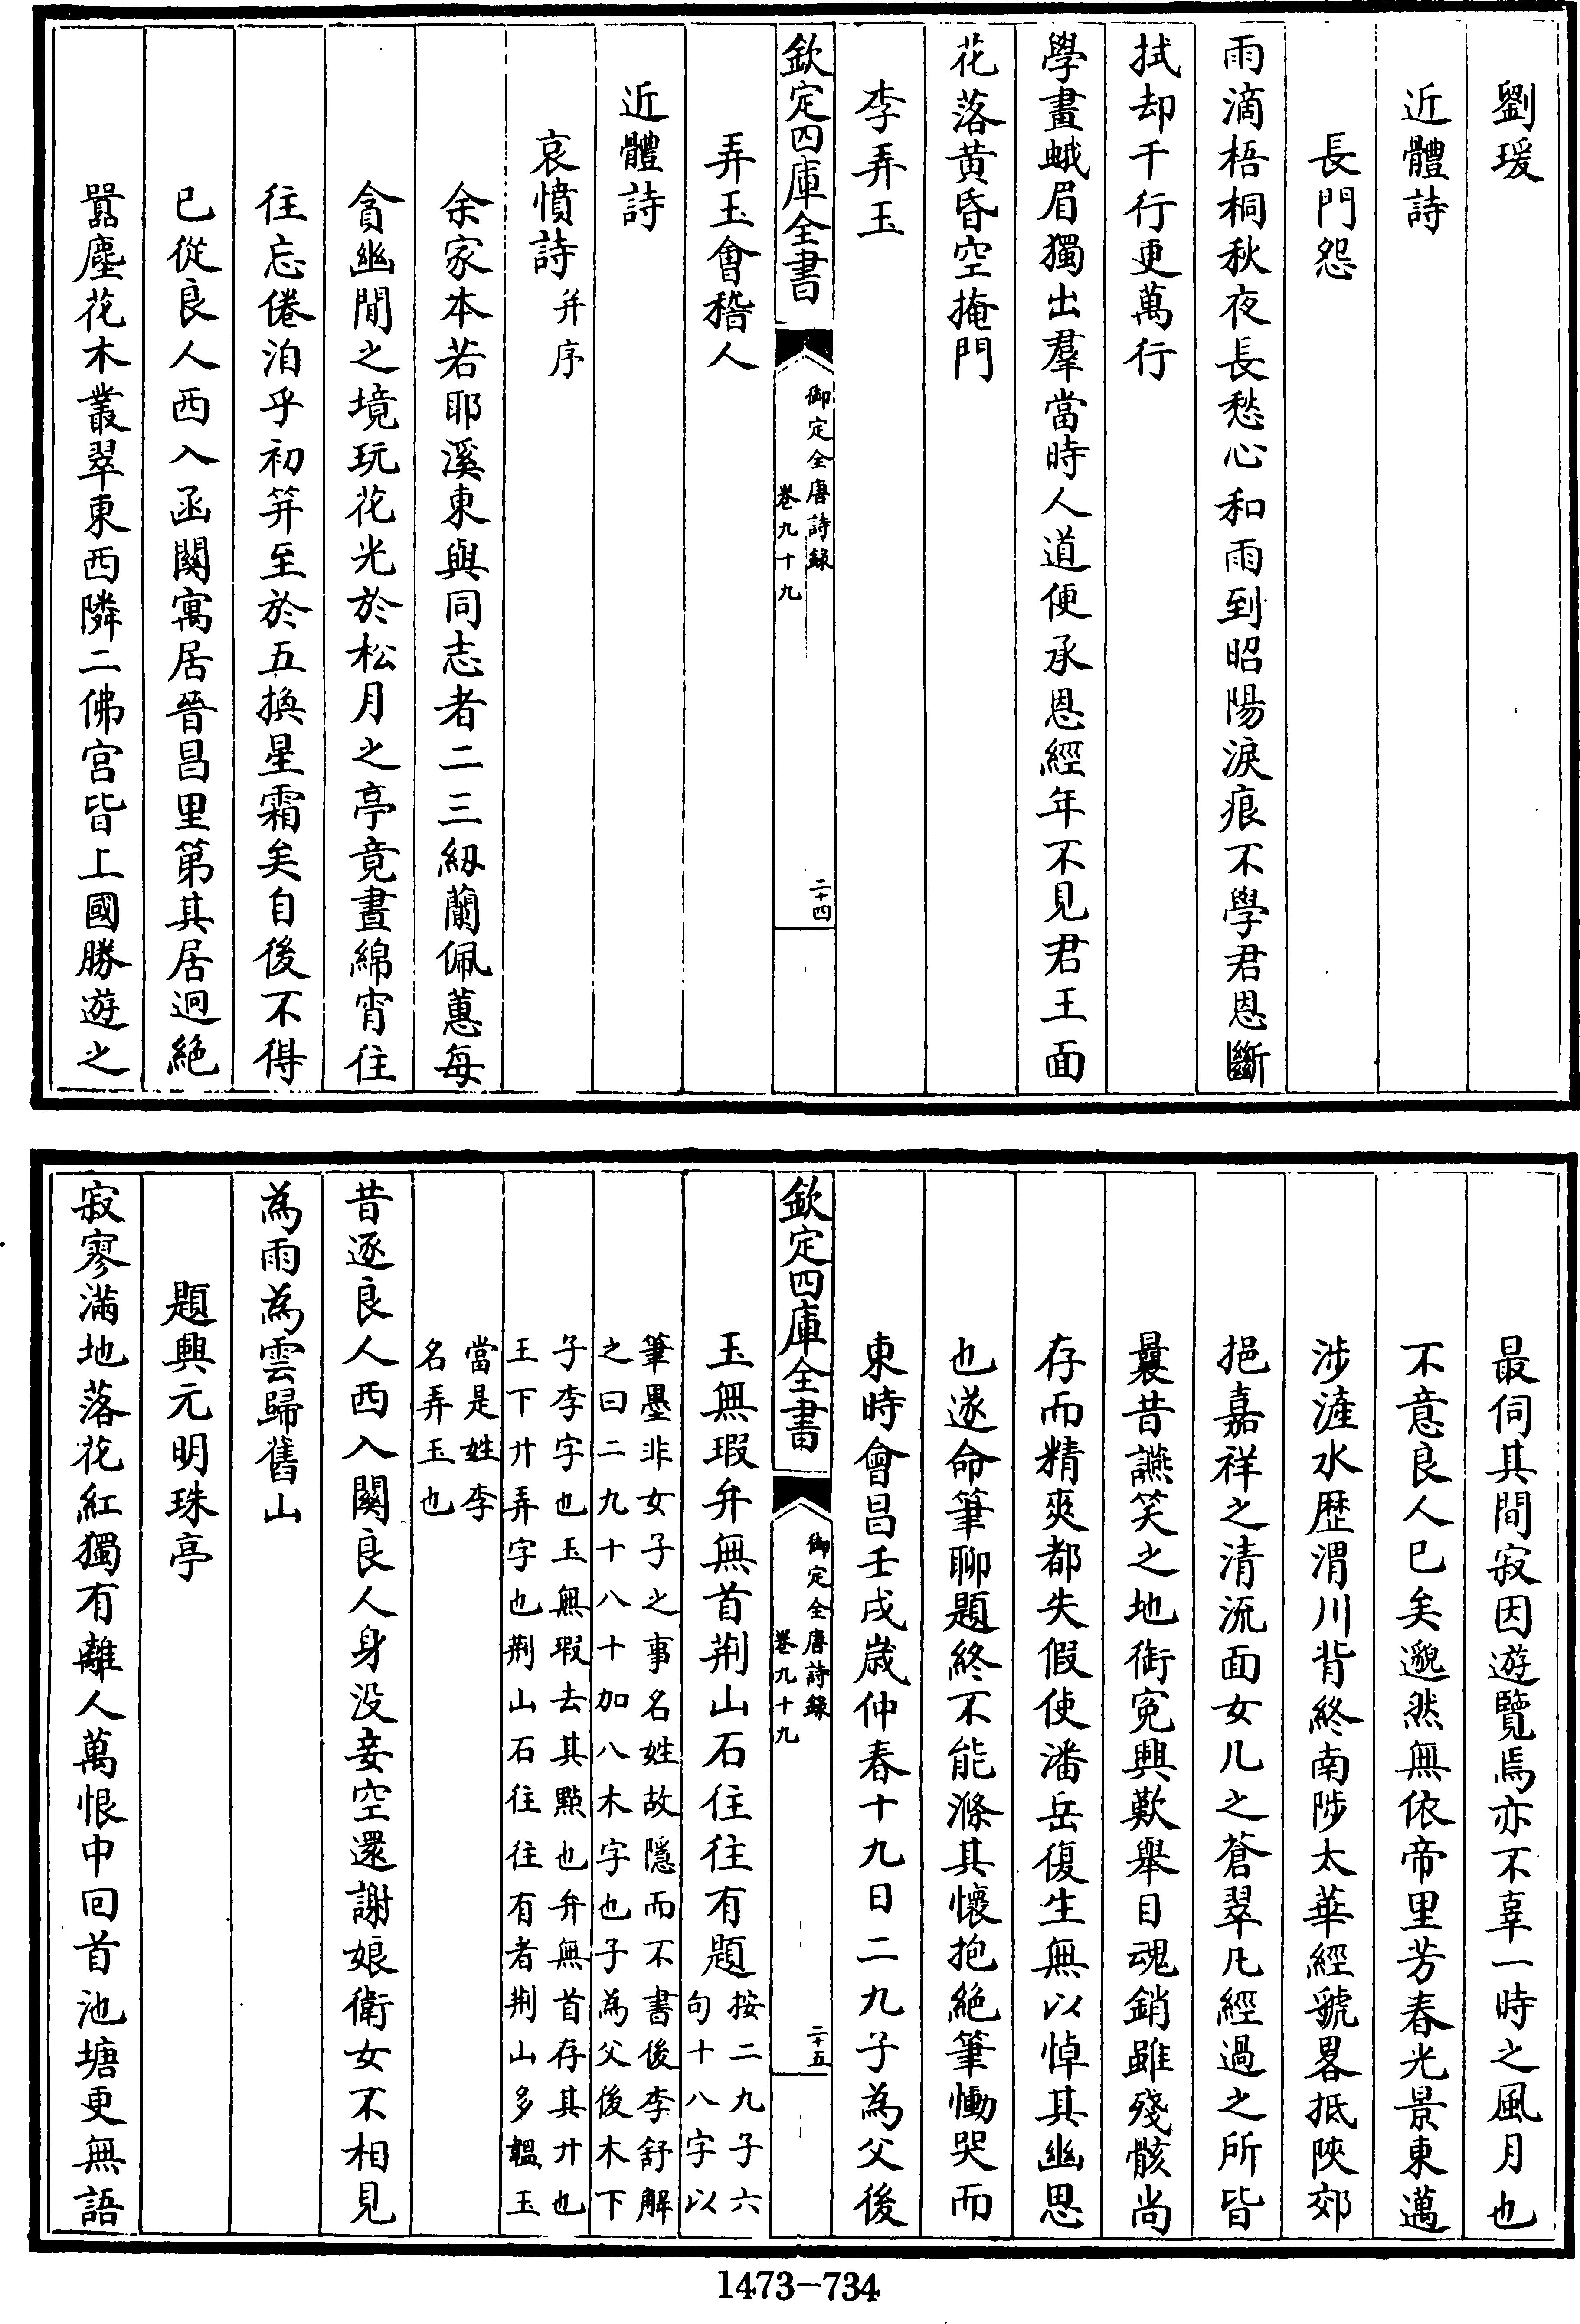 劉瑗
近體詩
長門怨
雨滴梧桐秋夜長愁心和雨到昭陽淚痕不學君恩斷
拭却千行更萬行
學畫蛾眉獨出羣當時人道便承恩經年不見君王面
花落黃昏空掩門
李弄玉
欽定四庫全書
御定全唐詩錄
卷九十九
二十四
弄玉會稽人
近體詩
哀憤詩并序
余家本若耶溪東與同志者二三紉蘭佩蕙每
貪幽閒之境玩花光於松月之亭竟晝綿宵往
往忘倦洎乎初笄至於五換星霜矣自後不得
已從良人西入函關寓居晉昌里第其居迥絕
囂塵花木叢翠東西隣二佛宮皆上國勝遊之
最伺其間寂因遊覽焉亦不辜一時之風月也
不意良人已矣邈然無依帝里芳春光景東邁
涉滻水歴渭川背終南陟太華經虢畧抵陜郊
挹嘉祥之清流面女几之蒼翠凡經過之所皆
曩昔讌笑之地銜寃興歎舉目魂銷雖殘骸尚
存而精爽都失假使潘岳復生無以悼其幽思
也遂命筆聊題終不能滌其懷抱絶筆慟哭而
東時會昌壬戌歲仲春十九日二九子為父後
欽定四庫全書
御定全唐詩錄
卷九十九
二十五
玉無瑕弁無首荆山石往往有題按二九子六
句十八字以
筆墨非女子之事名姓故隱而不書後李舒解
之曰二九十八十加八木字也子為父後木下
子李字也玉無瑕去其㸃也弁無首存其廾也
王下廾弄字也荆山石往往有者荆山多韞玉
當是姓李
名弄玉也
昔逐良人西入關良人身没妾空還謝娘衛女不相見
為雨為雲歸舊山
題興元明珠亭
寂寥滿地落花紅獨有離人萬恨中回首池塘更無語
1473—734